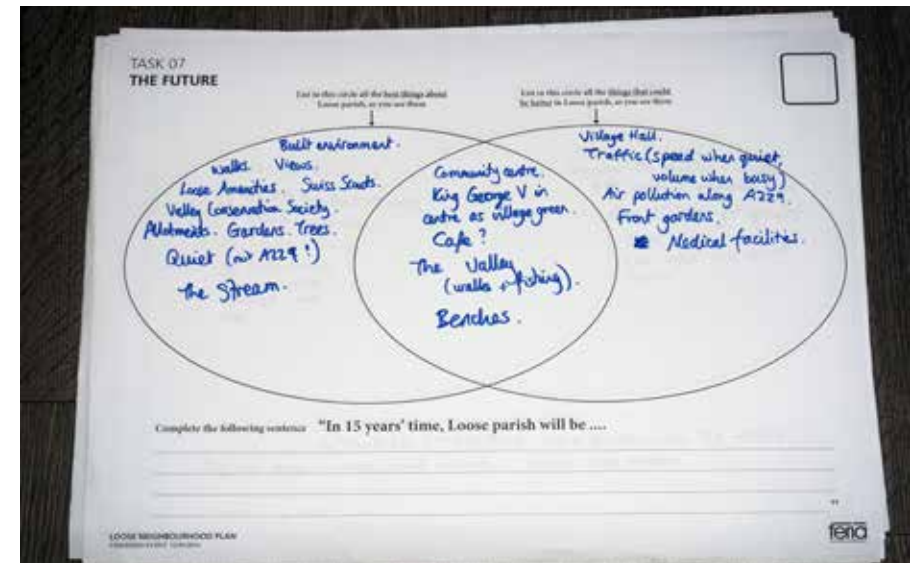 TASK 07
THE FUTURE
List in this circle all the best things about
Loose parish, as you see them
List in this circle all the things that could
be better in Loose parish, as you see them
Built environment.
Walks. Views.
Loose Amenities. Swiss Scouts.
Valley Conservation Society.
Allotments. Gardens. Trees.
Quiet (not A229!)
The Stream.
Community centre.
King George V in
centre as village green.
Cafe?
The Valley
(walks + fishing).
Benches.
Village Hall.
Traffic (speed when quiet,
volume when busy)
Air pollution along A229.
Front gardens.
Medical facilities.
Complete the following sentence "In 15 years' time, Loose parish will be ....
LOOSE NEIGHBOURHOOD PLAN
feria